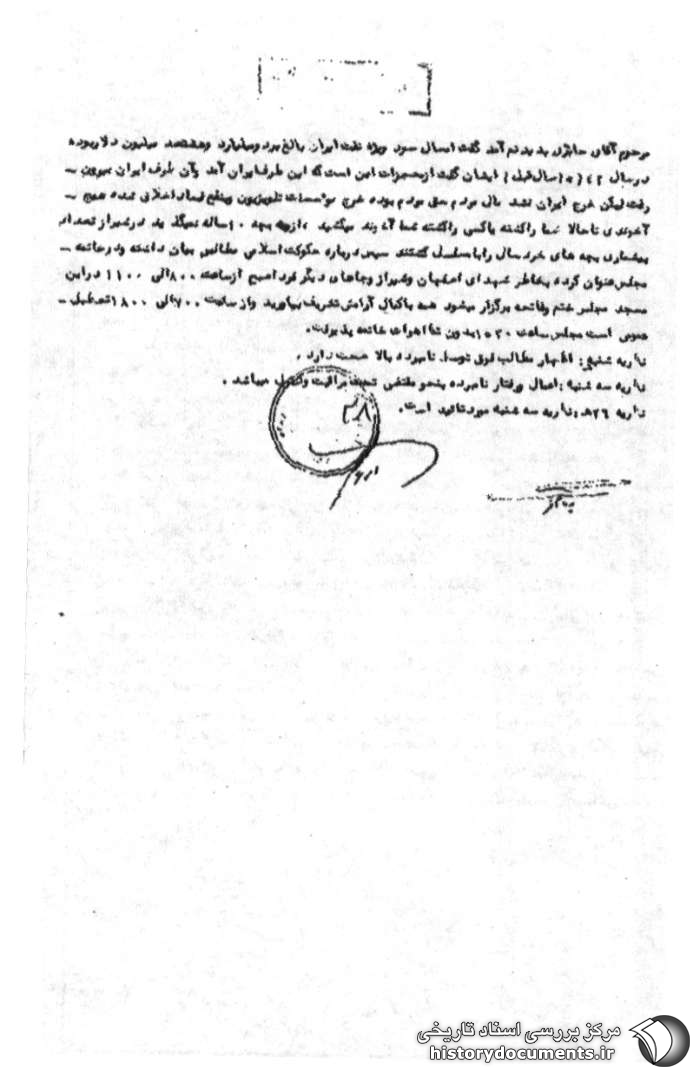 مرحوم آقای حائری بدیدنم آمد گفت امسال سود ویژه نفت ایران بالغ بر دو میلیارد و هفتصد میلیون دلار بوده
در سال ۴۲ (۱۰ سال قبل) ایشان گفت از معجزات این است که این طرف ایران آمد و آن طرف ایران بیرون -
رفت لیکن خرج ایران نشد مال مردم حق مردم بوده خرج موسسات تلویزیون و بنفع فساد اخلاقی شده هیچ -
آخوندی تا حالا شما را کشته یا کسی را کشته شما آخوند میکشید، از بچه ۱۰ ساله نمیگذرید در شیراز تعداد
بیشماری بچه های خرد سال را با مسلسل کشتند سپس درباره حکومت اسلامی مطالبی بیان داشته و در خاتمه -
مجلس عنوان کرده بخاطر شهدای اصفهان و شیراز و جاهای دیگر فردا صبح از ساعت ۸۰۰ الی ۱۱۰۰ در این
مسجد مجلس ختم و فاتحه برگزار میشود همه با کمال آرامش تشریف بیاورید و از ساعت ۷۰۰ الی ۱۸۰۰ تعطیل -
عمومی است مجلس ساعت ۱۰۳۰ بدون تظاهرات خاتمه پذیرفت.
نظریه شنبه: اظهار مطالب فوق توسط نامبرده بالا صحت دارد.
نظریه سه شنبه: اعمال و رفتار نامبرده بنحو مقتضی تحت مراقبت و کنترل میباشد.
نظریه ۲۶ هـ. نظریه سه شنبه مورد تائید است.
۳۸
مرکز بررسی اسناد تاریخی
historydocuments.ir